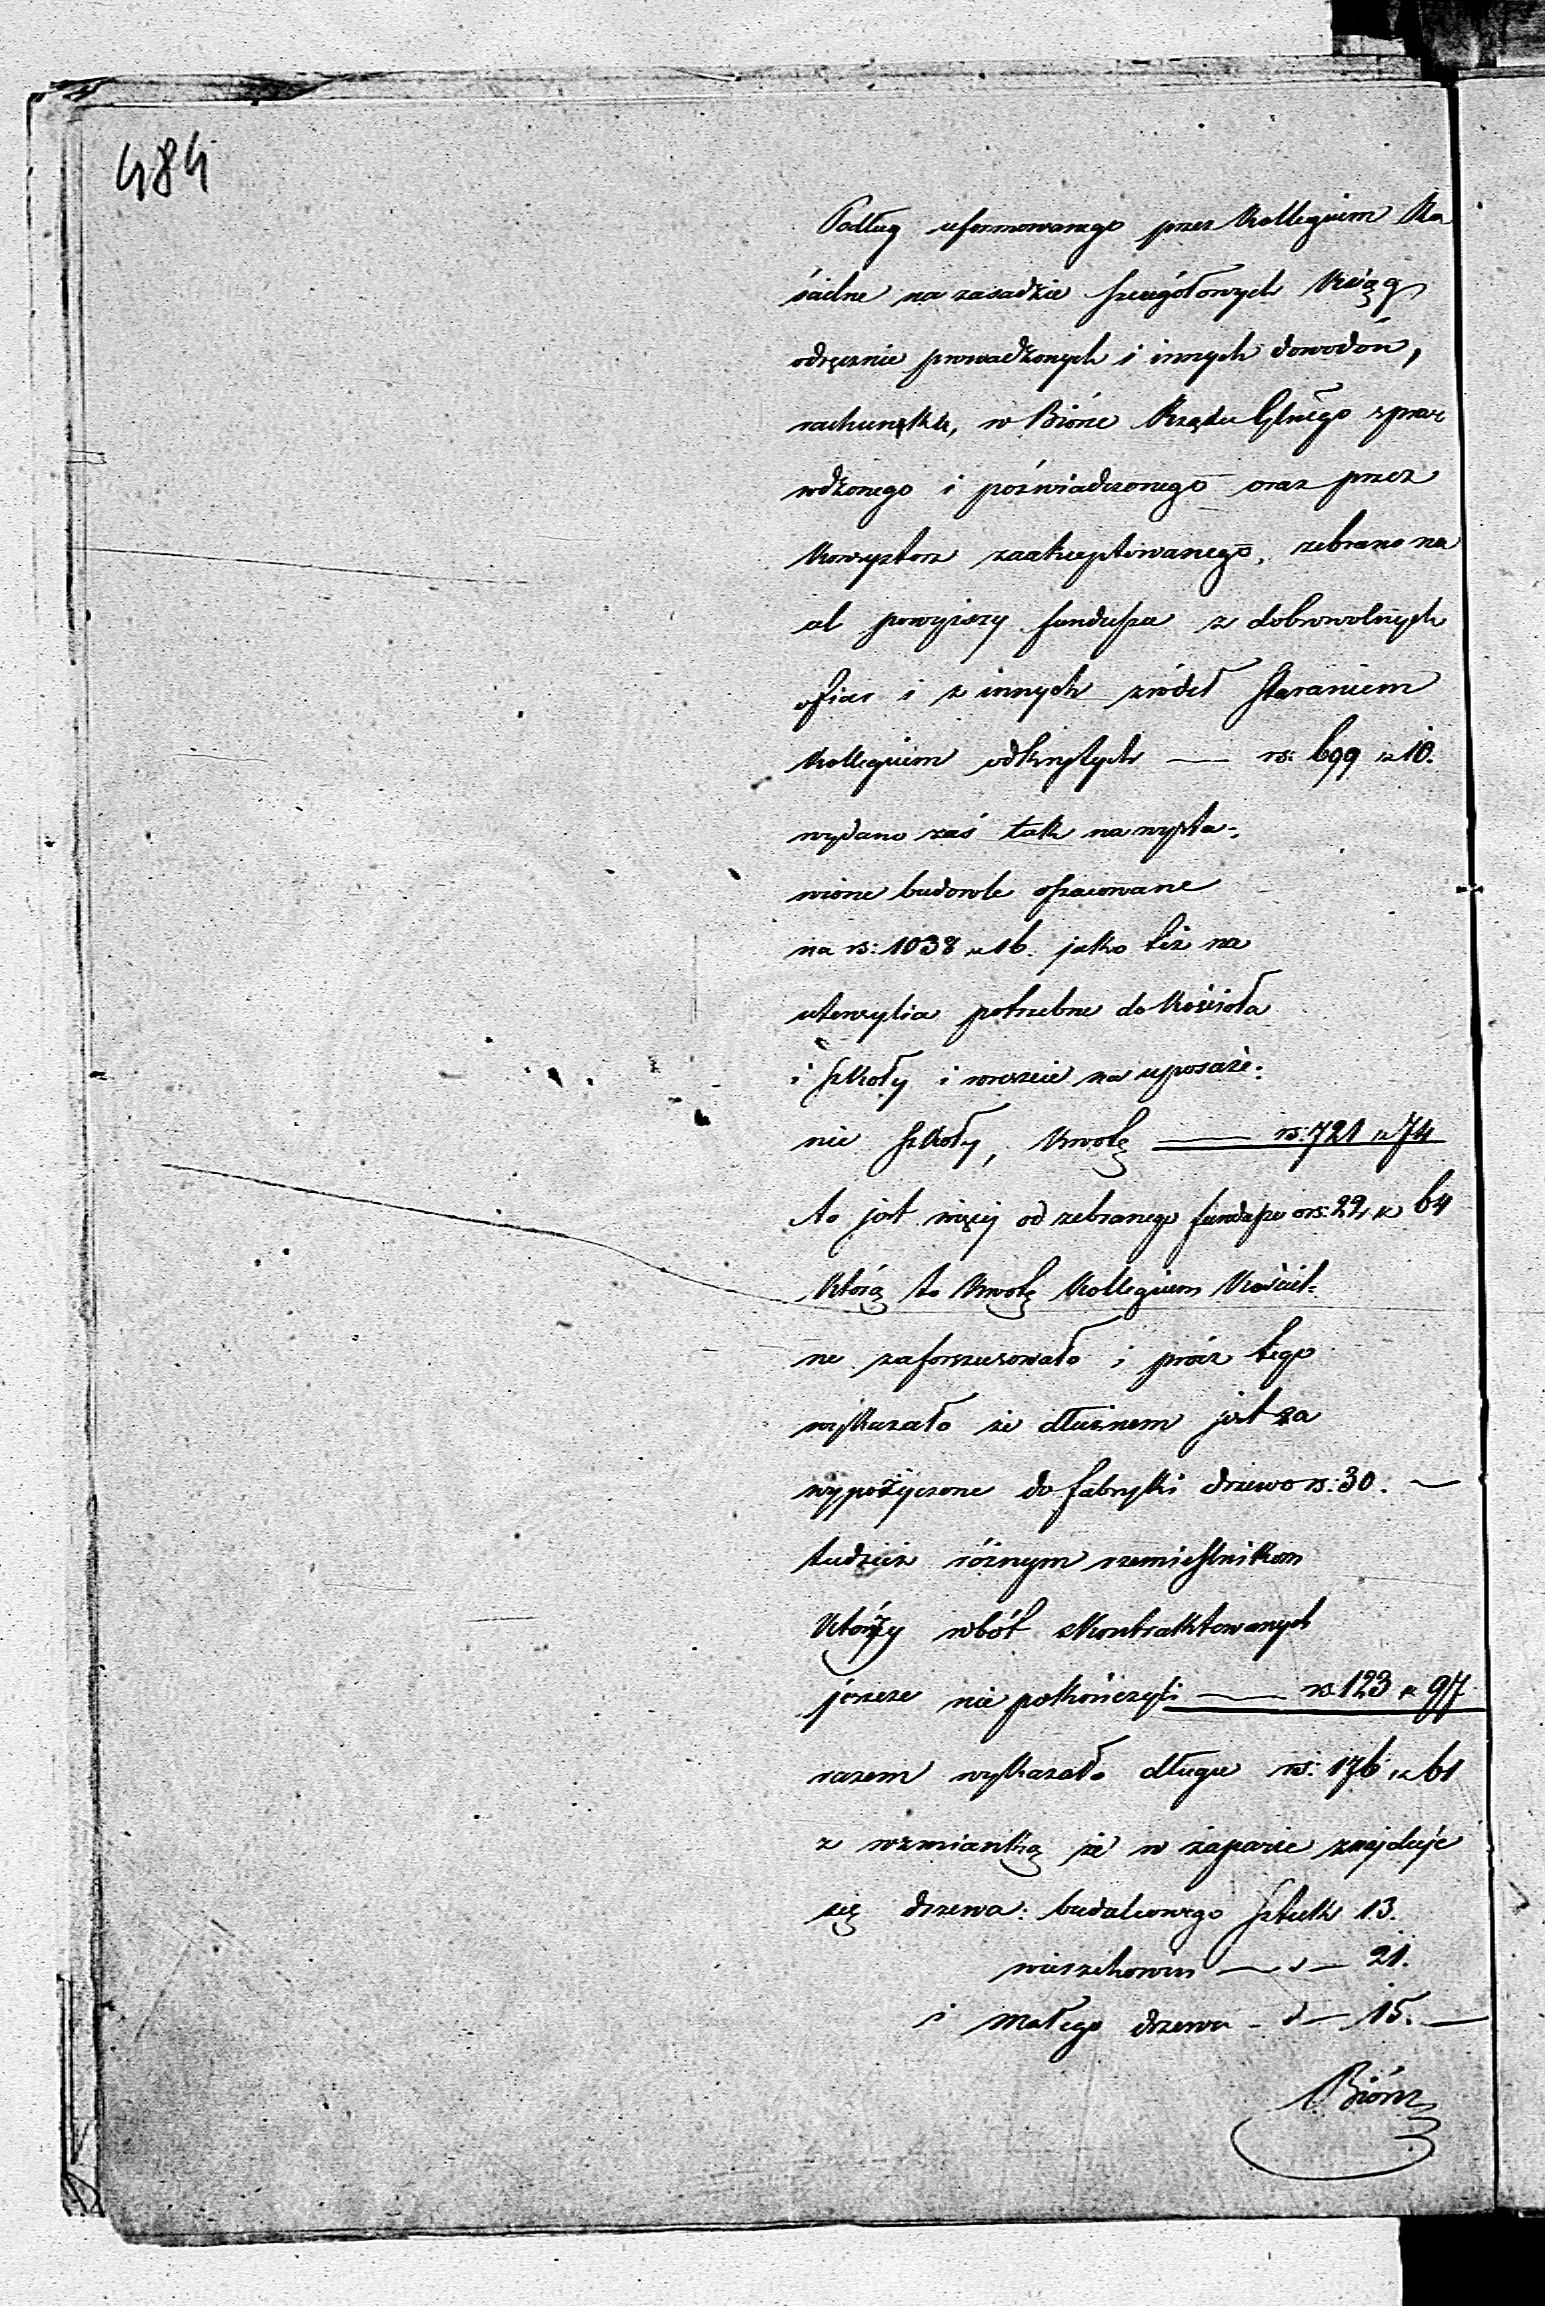 484
Podług uformowanego przez Kollegium Ko
ścielne na zasadzie szczegółowych Ksiąg
odręcznie prowadzonych i innych dowodów,
rachunku, w Biórze Rządu Głnego spraw
wdzonego i poświadczonego oraz przez
Konsystorz zaakceptowanego, zebrano na
cel powyższy funduszu z dobrowolnych
ofiar i z innych źródeł staraniem
Kollegium odkrytych — rs: 699 k 10.
wydano zaś tak na wysta-,
wione budowle oszacowane
na rs: 1038 k 16. jako też na
utensylia potrzebne do Kościoła
i szkoły i wreszcie na uposaże:
nie szkoły, kwotę — rs: 721 k 74
to jest więcej od zebranego funduszu o rs: 22 k 64
którą to kwotę Kollegium Kościel:
ne zaforszusowało i prócz tego
wykazało że dłużnem jest za
wypożyczone do fabryki drzewo rs: 30. —
tudzież różnym rzemieślnikom
którzy robót zkontraktowanych
jeszcze nie pokończyli — rs. 123 k 97
razem wykazało długu rs: 176 k 61
z wzmianką że w zapasie znajduje
się drzewa: budulcowego sztuk 13.
— d — 21.
i małego drzewa - d — 15. —
Biórz